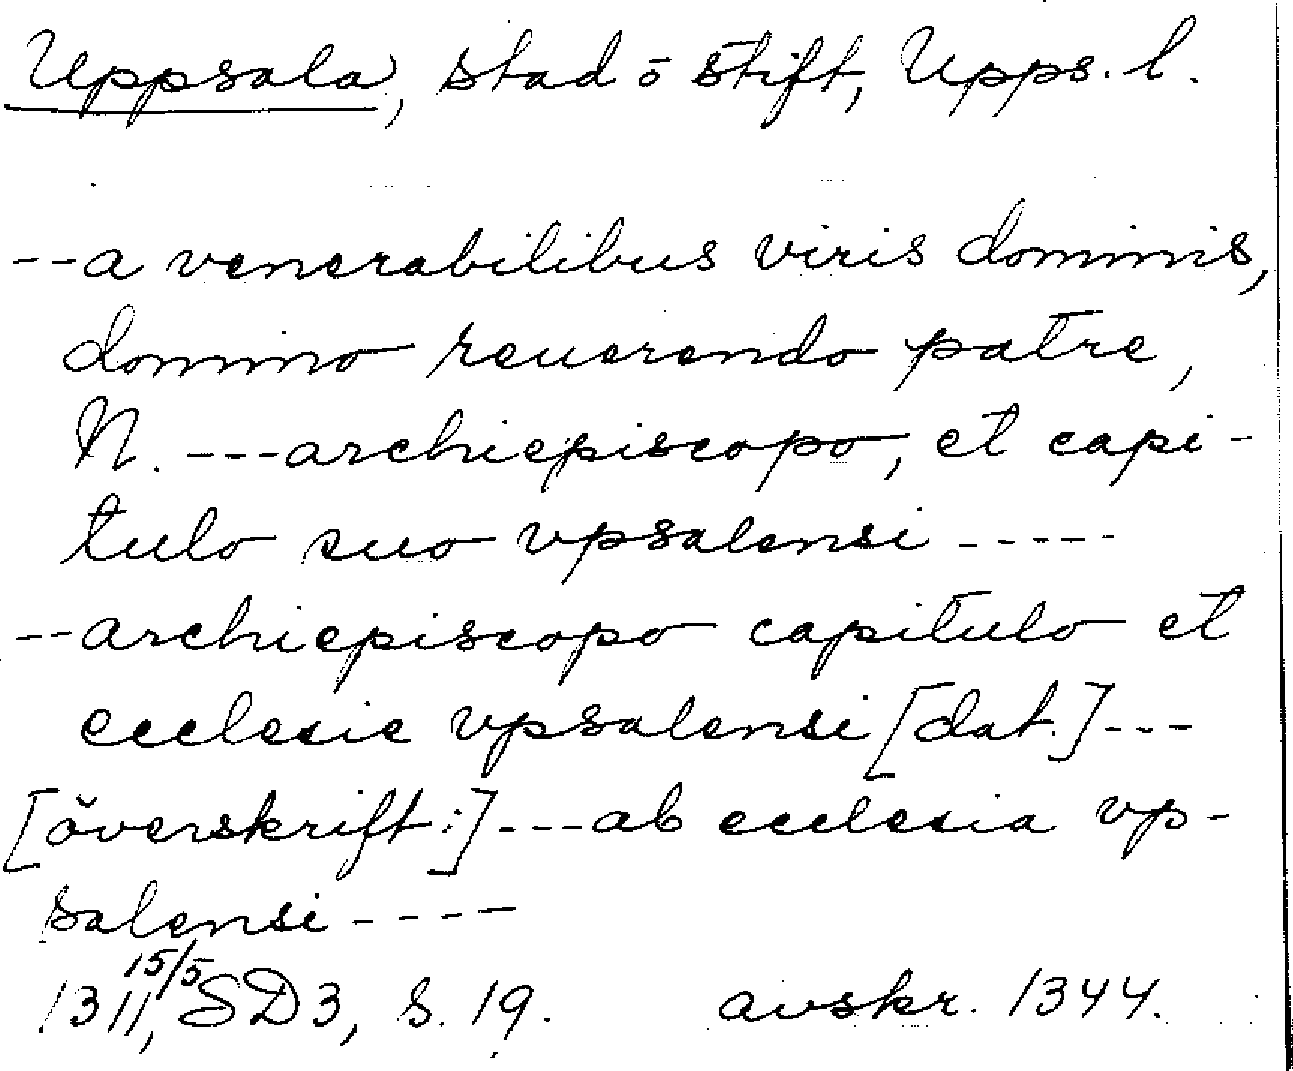 Uppsala, stad o stift, Upps. l.
--a venerabilibus viris dominis,
domino reuerendo patre,
N. ---archiepiscopo, et capi-
tulo suo vpsalensi -----
--archiepiscopo capitulo et
ecclesie vpsalensi [dat.]---
[överskrift:]---ab ecclesia vp-
salensi ----
1311, 15/5 SD3, s. 19. avskr. 1344.